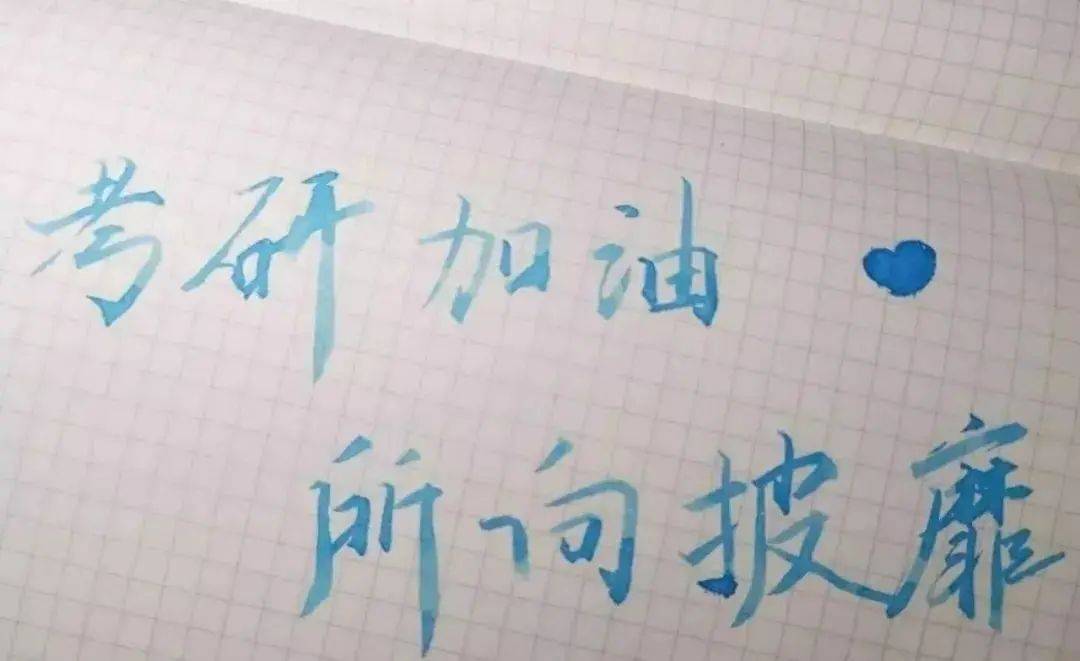 考研加油
所向披靡